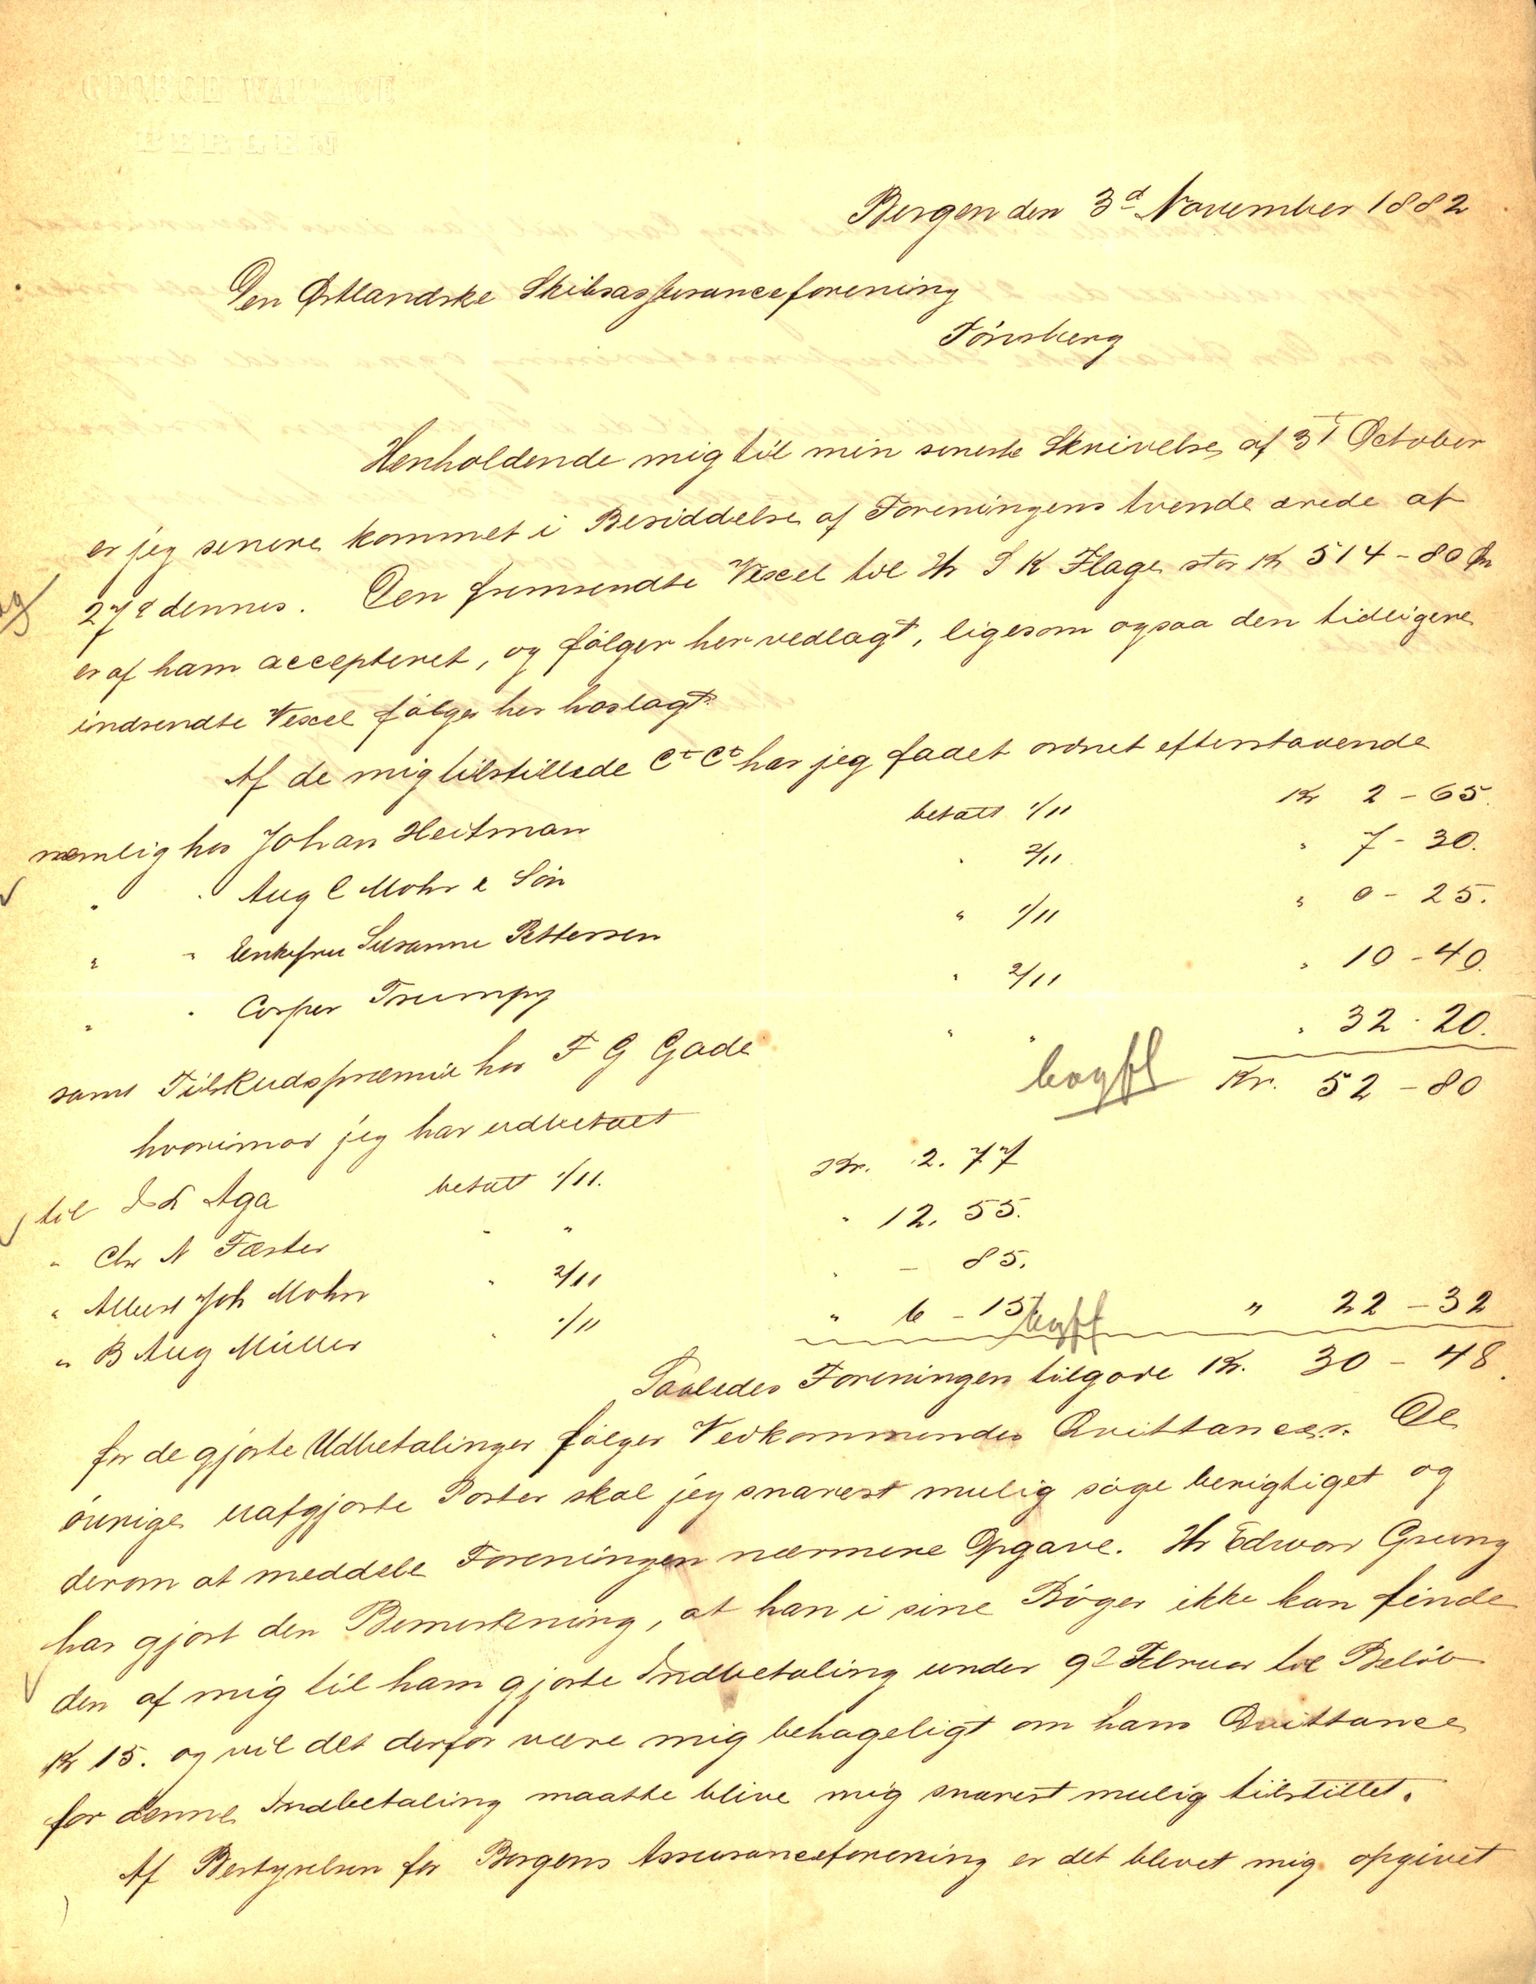 GEORGE WALLACE
BERGEN
Bergen den 3d November 1882
Den Østlandske Skibsassuranceforening
Tönsberg
Henholdende mig til min seneste Skrivelse af October
er jeg senere kommet i Besiddelse af Foreningens tvende ærede af
27d dennes. Den fremsendte Vexel til Hr S K Flage stor Kr 514-80 Øre
er af ham accepteret, og følger her vedlagt, ligesom ogsaa den tidligere
indsendte Vexel følger her hoslagt
Af de mig tilstillede Ct Ct har jeg faaet ordnet efterstaaende
nemlig hos Johan Heitman betalt 1/11 Kr 2-65.
" " Aug C Mohr & Sön " 2/11 " 7-30.
" " Enkefru Susanne Pettersen " 1/11 " 0-25.
" " Casper Trumpy " 2/11 " 10-40.
samt Tilskudspræmie hos F G Gade " " " 32.20.
bogfl Kr. 52-80
hvorimod jeg har udbetalt
til Aga betalt 1/11. Kr. 2.77
" Chr N Fæster " " " 12.55.
" Albert Joh Mohn " 2/11 " - 85.
" B Aug Müller " 1/11 " 6-15. bogfl " 22-32
Saaledes Foreningen tilgode Kr. 30-48.
for de gjorte Udbetalinger følger Vedkommendes Qvittancer. De
øvrige uafgjorte Poster skal jeg snarest mulig søge berigtiget og
derom at meddele Foreningen nærmere Opgave. Hr Edvard Grung
har gjort den Bemerkning, at han i sine Bøger ikke kan finde
den af mig til ham gjorte Indbetaling under 9d Februar til Beløb
Kr 15. og vil det derfor være mig behageligt om hans Qvittance
for denne Indbetaling maatte blive mig snarest mulig tilstillet.
Af Bestyrelsen for Bergens Assuranceforening er det blevet mig opgivet